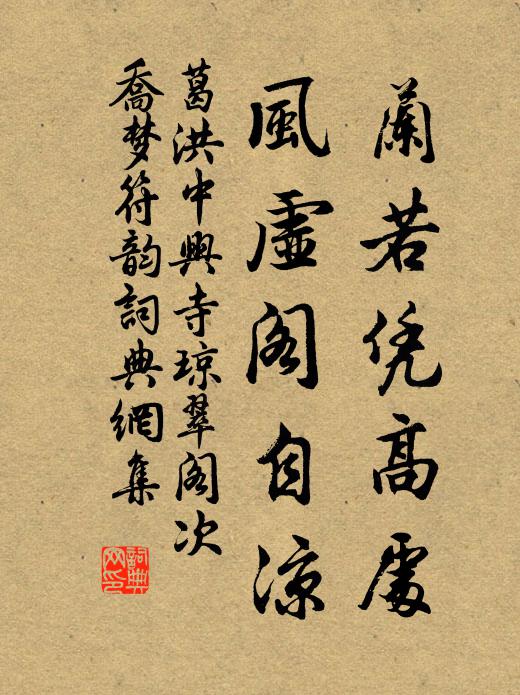 蘭若凭高處
風虛閣自涼
葛洪中興寺琼翠阁次
喬梦符韵詞典網集
詞典网印